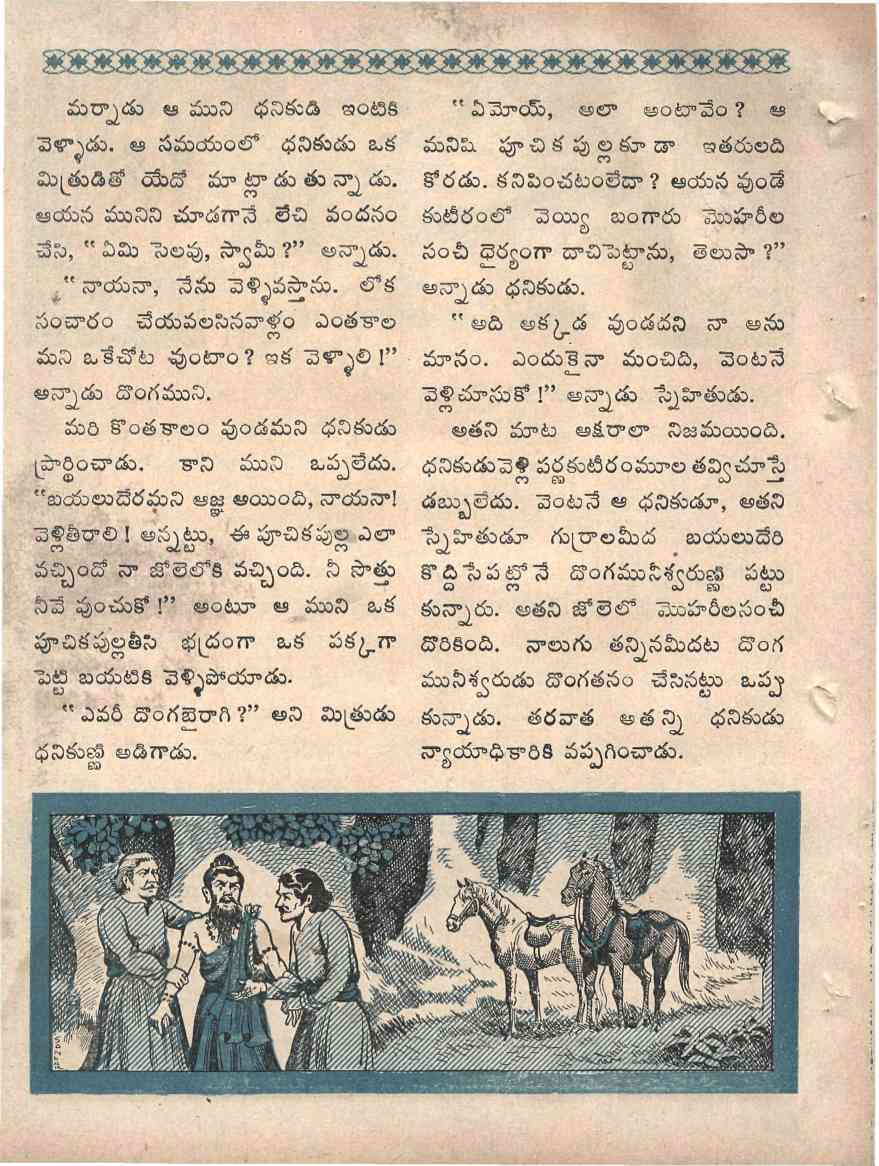 మర్నాడు ఆ ముని ధనికుడి ఇంటికి
వెళ్ళాడు. ఆ సమయంలో ధనికుడు ఒక
మిత్రుడితో యేదో మాట్లాడుతున్నాడు.
ఆయన మునిని చూడగానే లేచి వందనం
చేసి, “ ఏమి సెలవు, స్వామీ ?” అన్నాడు.
“ నాయనా, నేను వెళ్ళివస్తాను. లోక
సంచారం చేయవలసినవాళ్లం ఎంతకాల
మని ఒకేచోట వుంటాం ? ఇక వెళ్ళాలి !”
అన్నాడు దొంగముని.
మరి కొంతకాలం వుండమని ధనికుడు
ప్రార్థించాడు. కాని ముని ఒప్పలేదు.
“బయలుదేరమని ఆజ్ఞ అయింది, నాయనా!
వెళ్లితీరాలి! అన్నట్టు, ఈ పూచికపుల్ల ఎలా
వచ్చిందో నా జోలెలోకి వచ్చింది. నీ సొత్తు
నీవే వుంచుకో !” అంటూ ఆ ముని ఒక
పూచికపుల్లతీసి భద్రంగా ఒక పక్కగా
పెట్టి బయటికి వెళ్ళిపోయాడు.
“ ఎవరీ దొంగబైరాగి ?” అని మిత్రుడు
ధనికుణ్ణి అడిగాడు.
“ ఏమోయ్, అలా అంటావేం ? ఆ
మనిషి పూచికపుల్లకూడా ఇతరులది
కోరడు. కనిపించటంలేదా ? ఆయన వుండే
కుటీరంలో వెయ్యి బంగారు మొహరీల
సంచీ ధైర్యంగా దాచిపెట్టాను, తెలుసా ?”
అన్నాడు ధనికుడు.
“ అది అక్కడ వుండదని నా అను
మానం. ఎందుకైనా మంచిది, వెంటనే
వెళ్లిచూసుకో !” అన్నాడు స్నేహితుడు.
అతని మాట అక్షరాలా నిజమయింది.
ధనికుడువెళ్లి పర్ణకుటీరంమూల తవ్విచూస్తే
డబ్బులేదు. వెంటనే ఆ ధనికుడూ, అతని
స్నేహితుడూ గుర్రాలమీద బయలుదేరి
కొద్దిసేపట్లోనే దొంగమునీశ్వరుణ్ణి పట్టు
కున్నారు. అతని జోలెలో మొహరీలసంచీ
దొరికింది. నాలుగు తన్నినమీదట దొంగ
మునీశ్వరుడు దొంగతనం చేసినట్టు ఒప్పు
కున్నాడు. తరవాత అతన్ని ధనికుడు
న్యాయాధికారికి వప్పగించాడు.